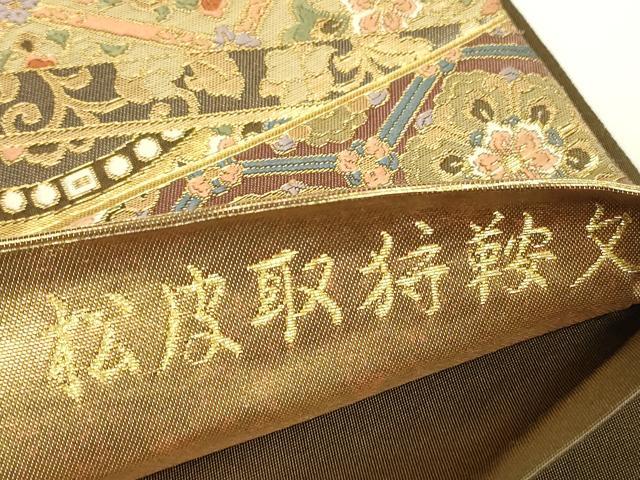 松皮取狩鞍文